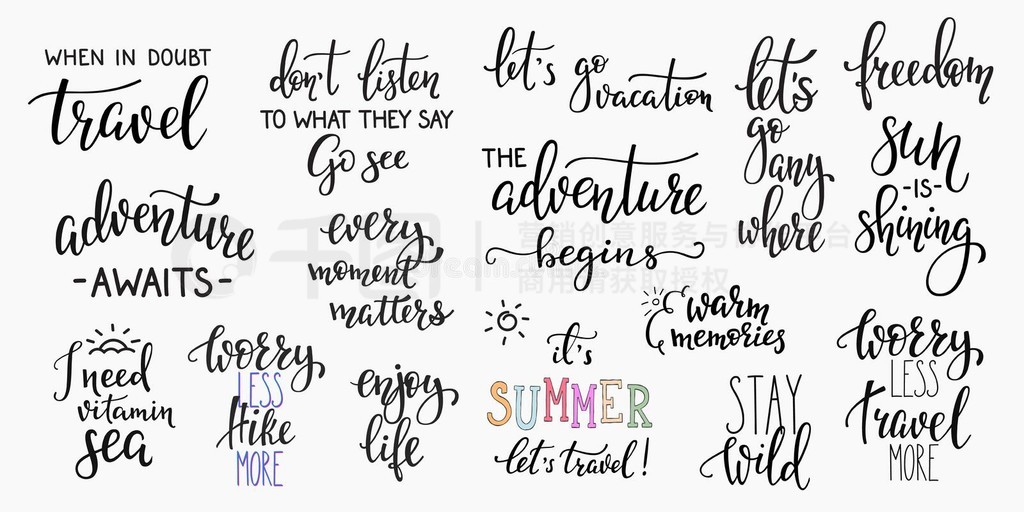 WHEN IN DOUBT
travel
don't listen
TO WHAT THEY SAY
Go see
let's go
vacation
let's
go
any
where
freedom
sun
-IS-
shining
adventure
-AWAITS-
every
moment
matters
THE
adventure
begins
warm
memories
I need
vitamin
sea
worry
LESS
Hike
MORE
enjoy
life
it's
SUMMER
let's travel!
STAY
wild
worry
LESS
travel
MORE
千图
营销创意服务与
商用请获取授权